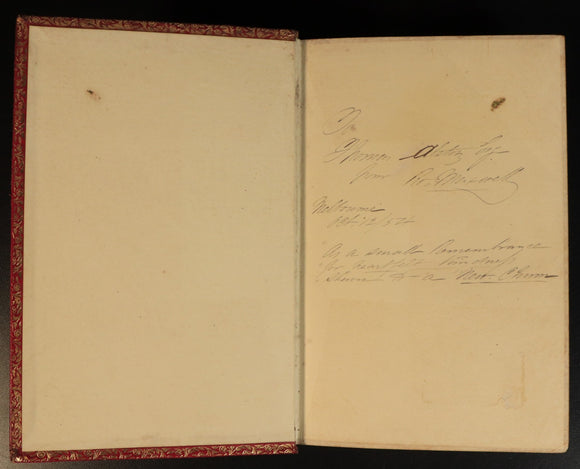 To
Thomas Esq
from Ro. Maxwell
Melbourne
Oct 12 / 54
As a small Remembrance
for heartfelt Kindness
Shewn to a New Chum